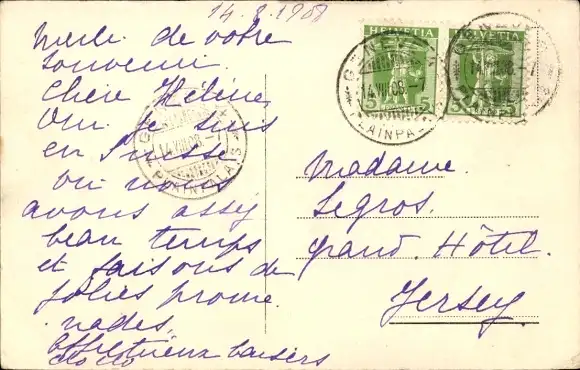 14.8.1908
Merci de votre
souvenir.
Chère Hélène,
Oui je suis
en Suisse
où nous
avons assez
beau temps
et faisons de
jolies prome
nades,
Affectueux baisers
HELVETIA
5 5
HELVETIA
5 5
GENÈVE
14.VIII.08.-7
PLAINPALAIS
Madame.
Legros.
Grand. Hôtel.
Jersey.